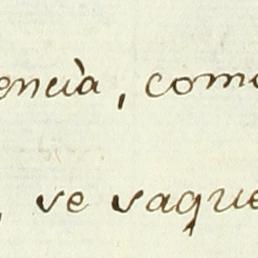 encià, como
, ve vaque